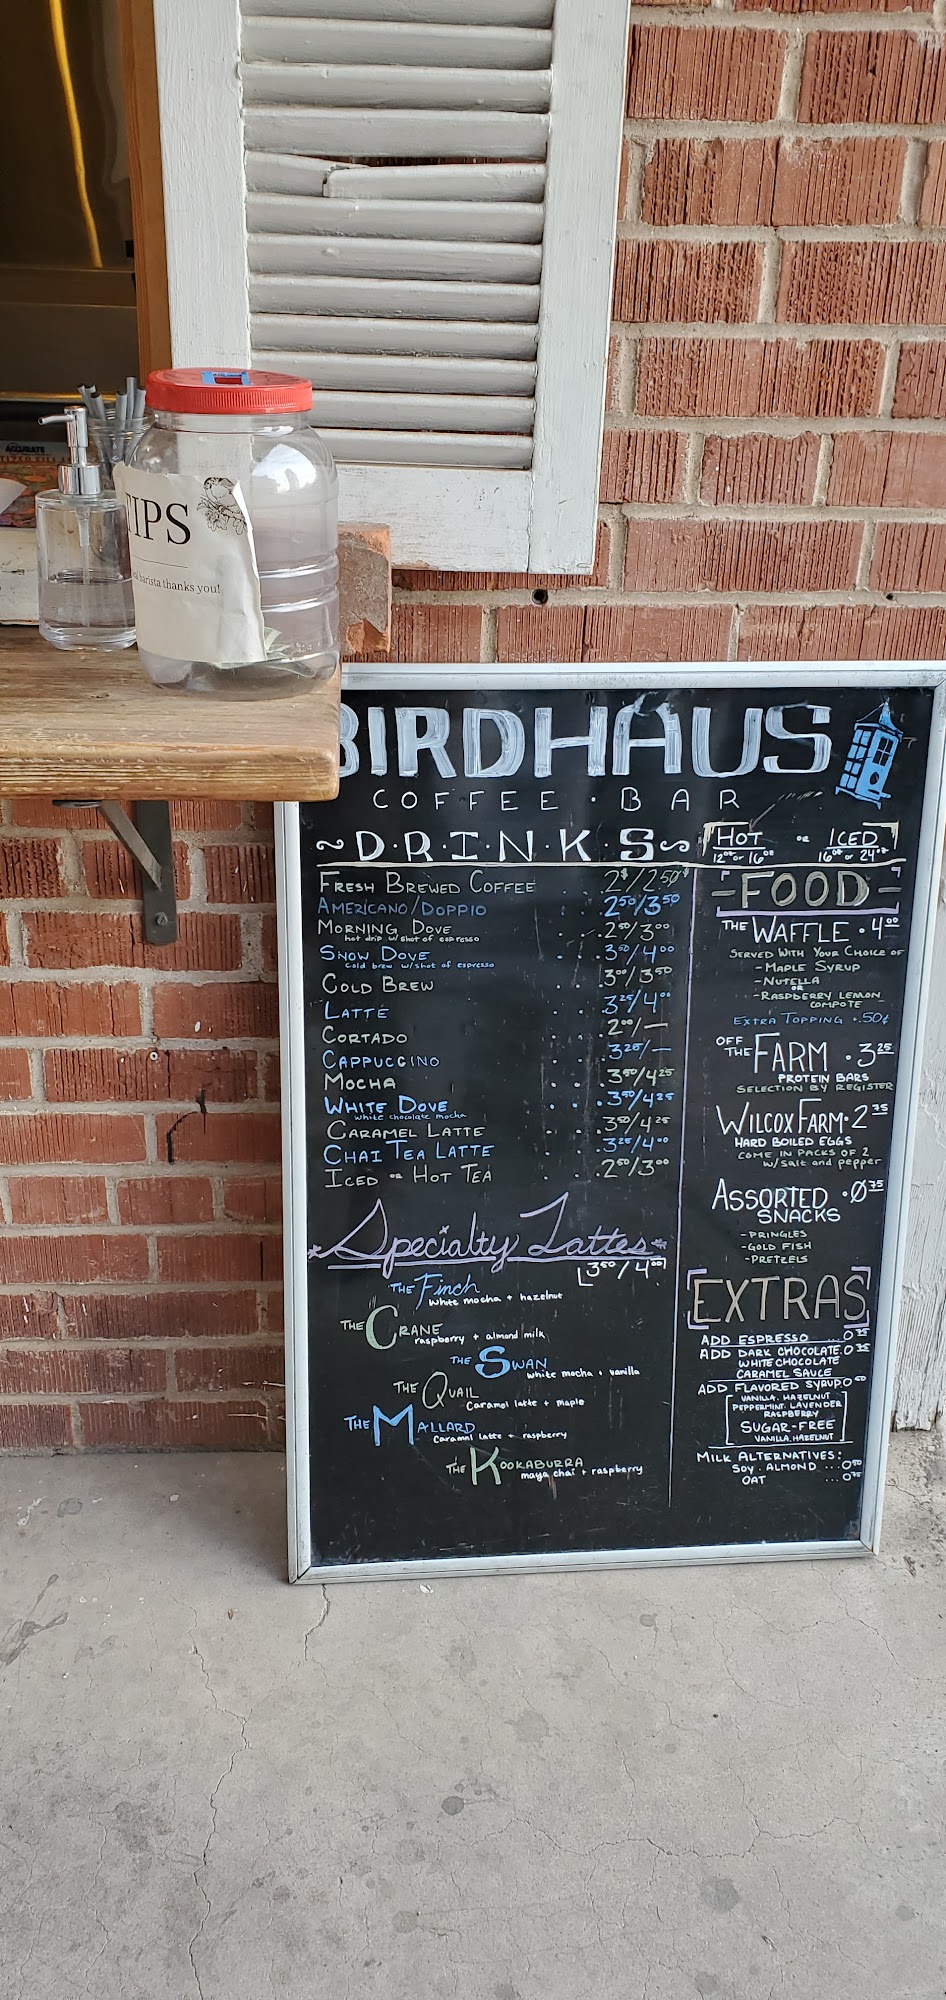 ACCURATE
TIPS
barista thanks you!
BIRDHAUS
COFFEE · BAR
~D·R·I·N·K·S~
HOT or ICED
12oz or 16oz 16oz or 24oz
FRESH BREWED COFFEE . . 2$/2.50$
AMERICANO/DOPPIO . . 2.50/3.50
MORNING DOVE . . 2.50/3.00
hot drip w/shot of espresso
SNOW DOVE . . 3.50/4.00
cold brew w/shot of espresso
COLD BREW . . 3.00/3.50
LATTE . . 3.25/4.00
CORTADO . . 2.00/—
CAPPUCCINO . . 3.25/—
MOCHA . . 3.50/4.25
WHITE DOVE . . 3.50/4.25
white chocolate mocha
CARAMEL LATTE . . 3.50/4.25
CHAI TEA LATTE . . 3.25/4.00
ICED or HOT TEA . . 2.50/3.00
Specialty Lattes
[3.50/4.00]
THE Finch
white mocha + hazelnut
THE CRANE
raspberry + almond milk
THE SWAN
white mocha + vanilla
THE QUAIL
Caramel latte + maple
THE MALLARD
Caramel latte + raspberry
THE KOOKABURRA
maya chai + raspberry
-FOOD-
THE WAFFLE · 4.00
SERVED WITH YOUR CHOICE OF
-MAPLE SYRUP
-NUTELLA
OR
-RASPBERRY LEMON
COMPOTE
EXTRA TOPPING +.50¢
OFF THE FARM · 3.25
PROTEIN BARS
SELECTION BY REGISTER
WILCOX FARM · 2.75
HARD BOILED EGGS
COME IN PACKS OF 2
w/salt and pepper
ASSORTED · 0.75
SNACKS
-PRINGLES
-GOLD FISH
-PRETZELS
[EXTRAS]
ADD ESPRESSO ...
ADD DARK CHOCOLATE.
WHITE CHOCOLATE
CARAMEL SAUCE
ADD FLAVORED SYRUP
VANILLA. HAZELNUT
PEPPERMINT. LAVENDER
RASPBERRY
SUGAR-FREE
VANILLA. HAZELNUT
MILK ALTERNATIVES:
SOY . ALMOND ...0.50
OAT ...0.75